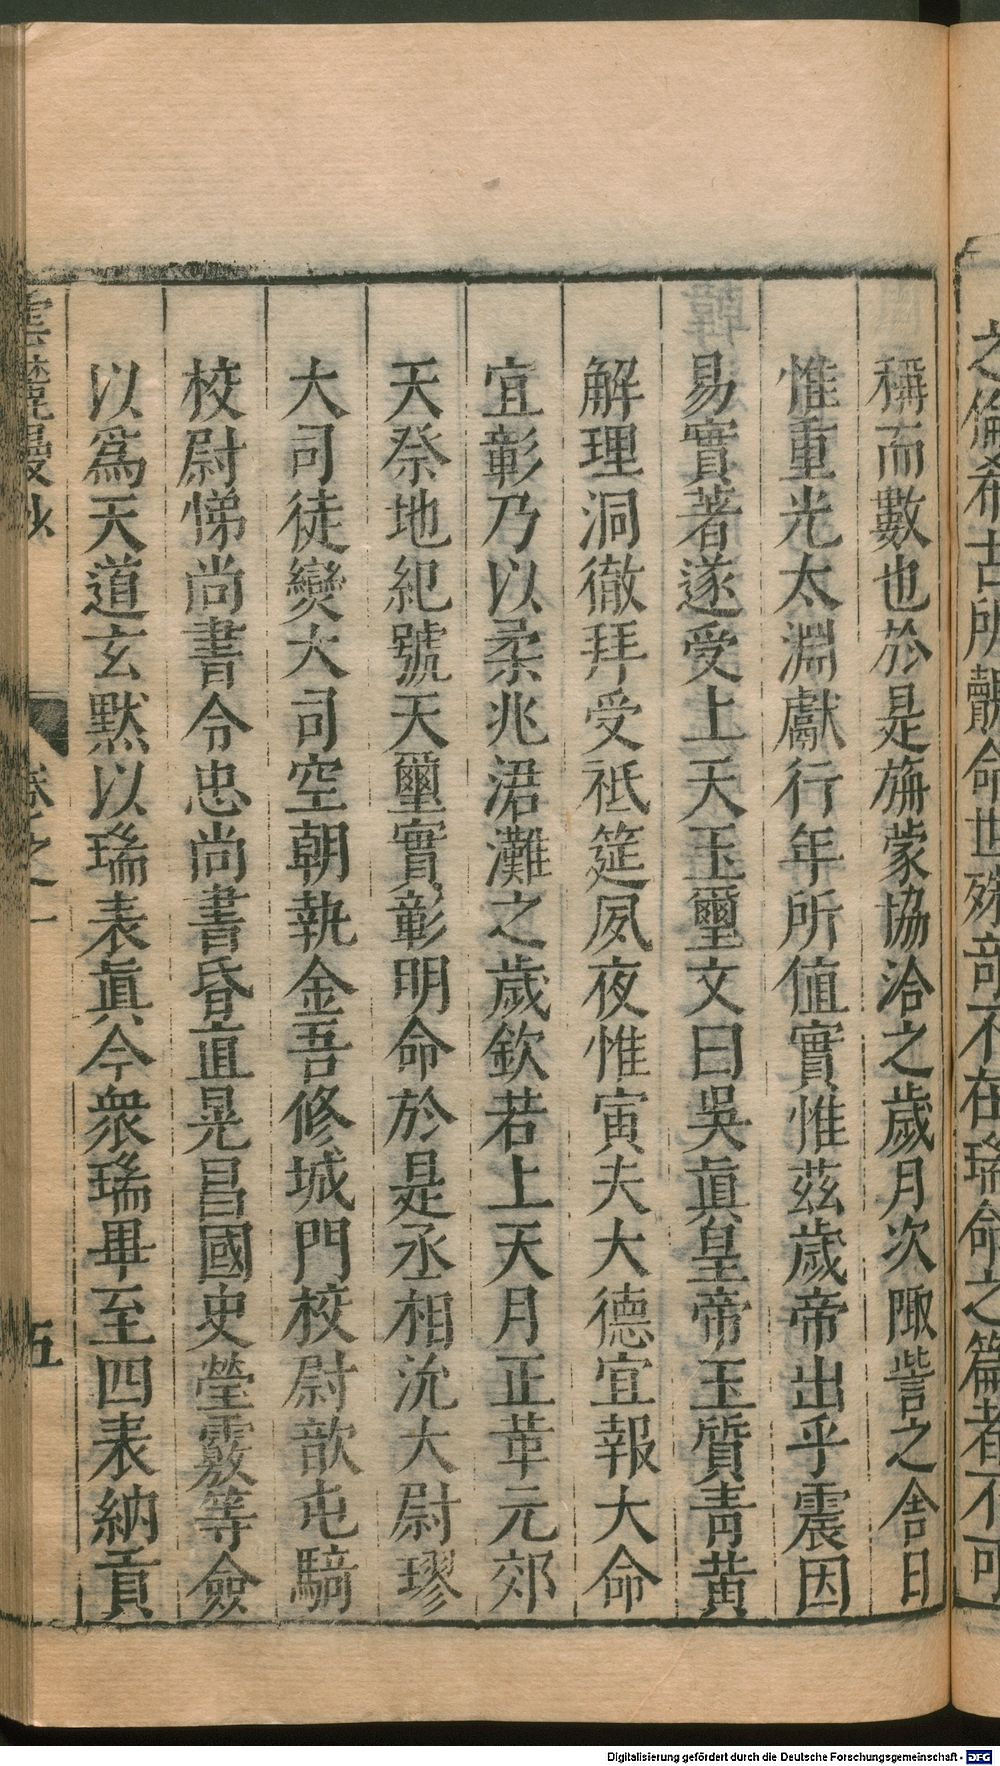 之倫希古所覿命世殊奇不在瑞命之篇者不可
稱而數也於是旃蒙協洽之歲月次陬訾之舍日
惟重光太淵獻行年所值實惟茲歲帝出乎震因
易實著遂受上天玉璽文曰吳眞皇帝玉質青黃
解理洞徹拜受祗筵夙夜惟寅夫大德宜報大命
宜彰乃以柔兆涒灘之歲欽若上天月正革元郊
天祭地紀號天璽實彰明命於是丞相沇大尉璆
大司徒爕大司空朝執金吾修城門校尉歆屯騎
校尉悌尚書令忠尚書昏直晃昌國史瑩覈等僉
以爲天道玄默以瑞表眞今衆瑞畢至四表納貢
雲麓漫抄 卷之一 五
Digitalisierung gefördert durch die Deutsche Forschungsgemeinschaft - DFG